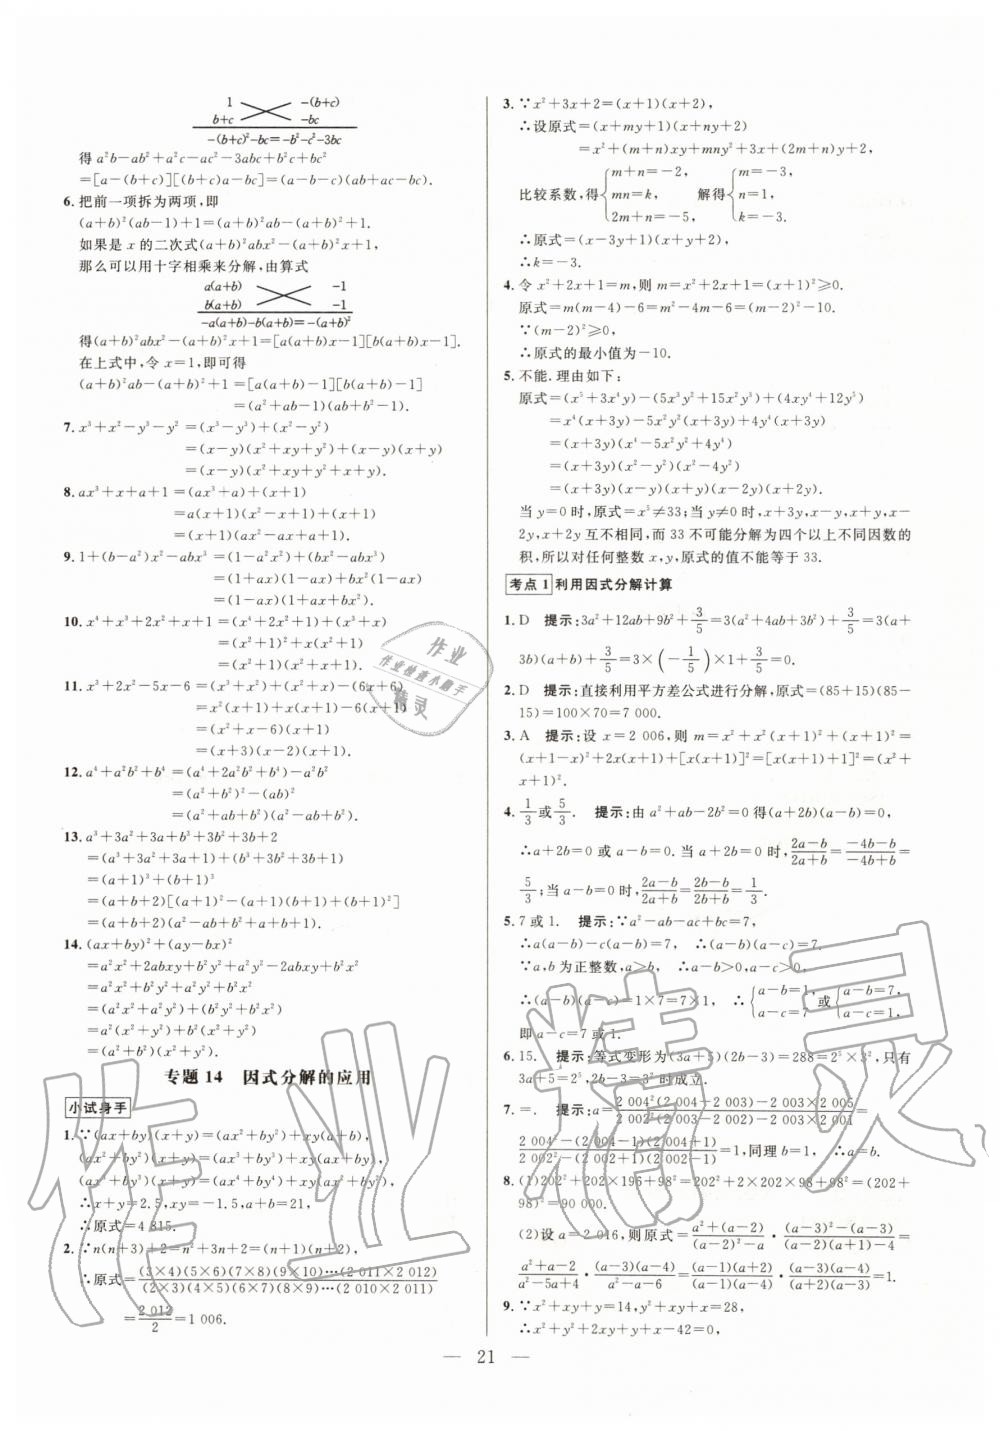 1 -(b+c)
b+c -bc
-(b+c)²-bc=-b²-c²-3bc
得 a²b-ab²+a²c-ac²-3abc+b²c+bc²
=[a-(b+c)][(b+c)a-bc]=(a-b-c)(ab+ac-bc).
6. 把前一项拆为两项,即
(a+b)²(ab-1)+1=(a+b)²ab-(a+b)²+1.
如果是 x 的二次式(a+b)²abx²-(a+b)²x+1,
那么可以用十字相乘来分解,由算式
a(a+b) -1
b(a+b) -1
-a(a+b)-b(a+b)=-(a+b)²
得(a+b)²abx²-(a+b)²x+1=[a(a+b)x-1][b(a+b)x-1].
在上式中,令 x=1,即可得
(a+b)²ab-(a+b)²+1=[a(a+b)-1][b(a+b)-1]
=(a²+ab-1)(ab+b²-1).
7. x³+x²-y³-y²=(x³-y³)+(x²-y²)
=(x-y)(x²+xy+y²)+(x-y)(x+y)
=(x-y)(x²+xy+y²+x+y).
8. ax³+x+a+1=(ax³+a)+(x+1)
=a(x+1)(x²-x+1)+(x+1)
=(x+1)(ax²-ax+a+1).
9. 1+(b-a²)x²-abx³=(1-a²x²)+(bx²-abx³)
=(1+ax)(1-ax)+bx²(1-ax)
=(1-ax)(1+ax+bx²).
10. x⁴+x³+2x²+x+1=(x⁴+2x²+1)+(x³+x)
=(x²+1)²+x(x²+1)
=(x²+1)(x²+x+1).
11. x³+2x²-5x-6=(x³+x²)+(x²+x)-(6x+6)
=x²(x+1)+x(x+1)-6(x+1)
=(x²+x-6)(x+1)
=(x+3)(x-2)(x+1).
12. a⁴+a²b²+b⁴=(a⁴+2a²b²+b⁴)-a²b²
=(a²+b²)²-(ab)²
=(a²+ab+b²)(a²-ab+b²).
13. a³+3a²+3a+b³+3b²+3b+2
=(a³+3a²+3a+1)+(b³+3b²+3b+1)
=(a+1)³+(b+1)³
=(a+b+2)[(a+1)²-(a+1)(b+1)+(b+1)²]
=(a+b+2)(a²-ab+b²+a+b+1).
14. (ax+by)²+(ay-bx)²
=a²x²+2abxy+b²y²+a²y²-2abxy+b²x²
=a²x²+b²y²+a²y²+b²x²
=(a²x²+a²y²)+(b²y²+b²x²)
=a²(x²+y²)+b²(x²+y²)
=(x²+y²)(a²+b²).
专题 14 因式分解的应用
小试身手
1. ∵(ax+by)(x+y)=(ax²+by²)+xy(a+b),
(ax²+by²)(x+y)=(ax³+by³)+xy(ax+by),
(ax³+by³)(x+y)=(ax⁴+by⁴)+xy(ax²+by²),
∴x+y=2.5,xy=-1.5,a+b=21,
∴原式=4 815.
2. ∵n(n+3)+2=n²+3n+2=(n+1)(n+2),
∴原式=(3×4)(5×6)(7×8)(9×10)…(2 011×2 012)/(2×3)(4×5)(6×7)(8×9)…(2 010×2 011)
=2 012/2=1 006.
3. ∵x²+3x+2=(x+1)(x+2),
∴设原式=(x+my+1)(x+ny+2)
=x²+(m+n)xy+mny²+3x+(2m+n)y+2,
比较系数,得{m+n=-2, mn=k, 2m+n=-5, 解得{m=-3, n=1, k=-3.
∴原式=(x-3y+1)(x+y+2);
∴k=-3.
4. 令 x²+2x+1=m,则 m=x²+2x+1=(x+1)²≥0.
原式=m(m-4)-6=m²-4m-6=(m-2)²-10.
∵(m-2)²≥0,
∴原式的最小值为-10.
5. 不能.理由如下:
原式=(x⁵+3x⁴y)-(5x³y²+15x²y³)+(4xy⁴+12y⁵)
=x⁴(x+3y)-5x²y²(x+3y)+4y⁴(x+3y)
=(x+3y)(x⁴-5x²y²+4y⁴)
=(x+3y)(x²-y²)(x²-4y²)
=(x+3y)(x-y)(x+y)(x-2y)(x+2y).
当 y=0 时,原式=x⁵≠33;当 y≠0 时,x+3y,x-y,x+y,x-
2y,x+2y 互不相同,而 33 不可能分解为四个以上不同因数的
积,所以对任何整数 x,y,原式的值不能等于 33.
考点 1 利用因式分解计算
1. D 提示:3a²+12ab+9b²+3/5=3(a²+4ab+3b²)+3/5=3(a+
3b)(a+b)+3/5=3×(-1/5)×1+3/5=0.
2. D 提示:直接利用平方差公式进行分解,原式=(85+15)(85-
15)=100×70=7 000.
3. A 提示:设 x=2 006,则 m=x²+x²(x+1)²+(x+1)²=
(x+1-x)²+2x(x+1)+[x(x+1)]²=[x(x+1)+1]²=(x²+
x+1)².
4. 1/3或5/3. 提示:由 a²+ab-2b²=0 得(a+2b)(a-b)=0,
∴a+2b=0 或 a-b=0. 当 a+2b=0 时,2a-b/2a+b=-4b-b/-4b+b=
5/3;当 a-b=0 时,2a-b/2a+b=2b-b/2b+b=1/3.
5. 7 或 1. 提示:∵a²-ab-ac+bc=7,
∴a(a-b)-c(a-b)=7, ∴(a-b)(a-c)=7,
∵a,b 为正整数,a>b, ∴a-b>0, ∴a-c>0,
∴(a-b)(a-c)=1×7=7×1, ∴{a-b=1, a-c=7 或{a-b=7, a-c=1.
即 a-c=7 或 1.
6. 15. 提示:等式变形为(3a+5)(2b-3)=288=2⁵×3²,只有
3a+5=2⁵,2b-3=3²时成立.
7. =. 提示:a=2 004²(2 004+2 003)-2 003×2 005/
2 004²-(2 004-1)(2 004+1)/2 002²-(2 002+1)(2 002-1)=1,同理 b=1, ∴a=b.
8. (1)202²+202×196+98²=202²+2×202×98+98²=(202+
98)²=90 000.
(2)设 a=2 016,则原式=a²+(a-2)/(a-2)²+a-1·(a-2)²-(a-3)/a(a+1)-4·(a-3)²-(a-4)/=
a²+a-2/a²-5a+4·(a-3)(a-4)/a²-a-6=(a-1)(a+2)/(a-1)(a-4)·(a-3)(a-4)/(a+2)(a-3)=1.
9. ∵x²+xy+y=14,y²+xy+x=28,
∴x²+y²+2xy+y+x-42=0,
— 21 —
作业
作业检查小助手
精灵
作业精灵